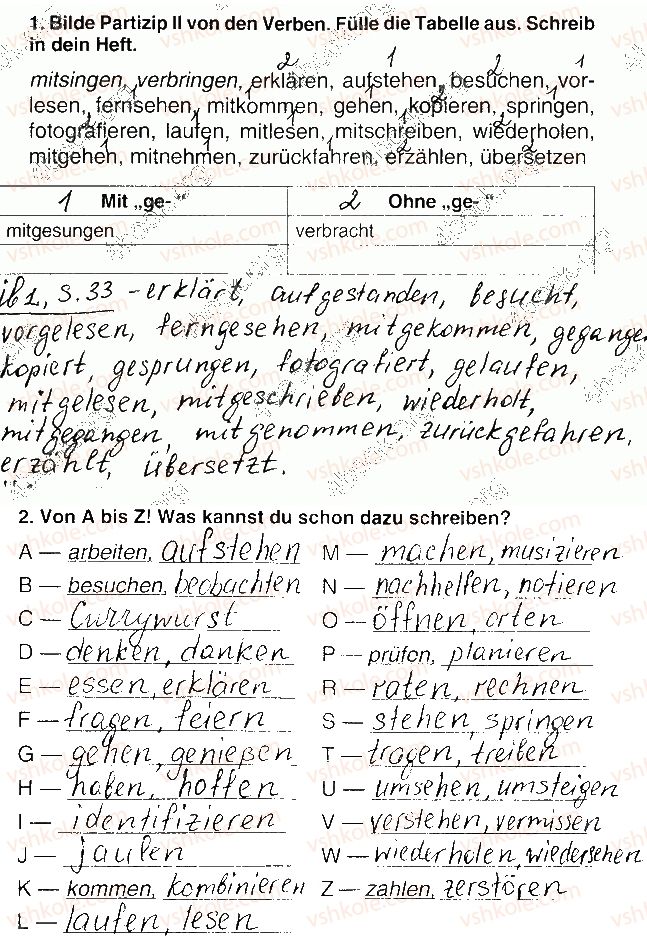 1. Bilde Partizip II von den Verben. Fülle die Tabelle aus. Schreib
in dein Heft.
mitsingen, verbringen, erklären, aufstehen, besuchen, vor-
lesen, fernsehen, mitkommen, gehen, kopieren, springen,
fotografieren, laufen, mitlesen, mitschreiben, wiederholen,
mitgehen, mitnehmen, zurückfahren, erzählen, übersetzen
1 Mit „ge-“ 2 Ohne „ge-“
mitgesungen verbracht
S. 33 - erklärt, aufgestanden, besucht,
vorgelesen, ferngesehen, mitgekommen, gegangen
kopiert, gesprungen, fotografiert, gelaufen,
mitgelesen, mitgeschrieben, wiederholt,
mitgegangen, mitgenommen, zurückgefahren,
erzählt, übersetzt.
2. Von A bis Z! Was kannst du schon dazu schreiben?
A — arbeiten, aufstehen
B — besuchen, beobachten
C — Currywurst
D — denken, danken
E — essen, erklären
F — fragen, feiern
G — gehen, genießen
H — haben, hoffen
I — identifizieren
J — jaulen
K — kommen, kombinieren
L — laufen, lesen
M — machen, musizieren
N — nachhelfen, notieren
O — öffnen, orten
P — prüfen, planieren
R — raten, rechnen
S — stehen, springen
T — tragen, treiben
U — umsehen, umsteigen
V — verstehen, vermissen
W — wiederholen, wiedersehen
Z — zahlen, zerstören
vshkole.com